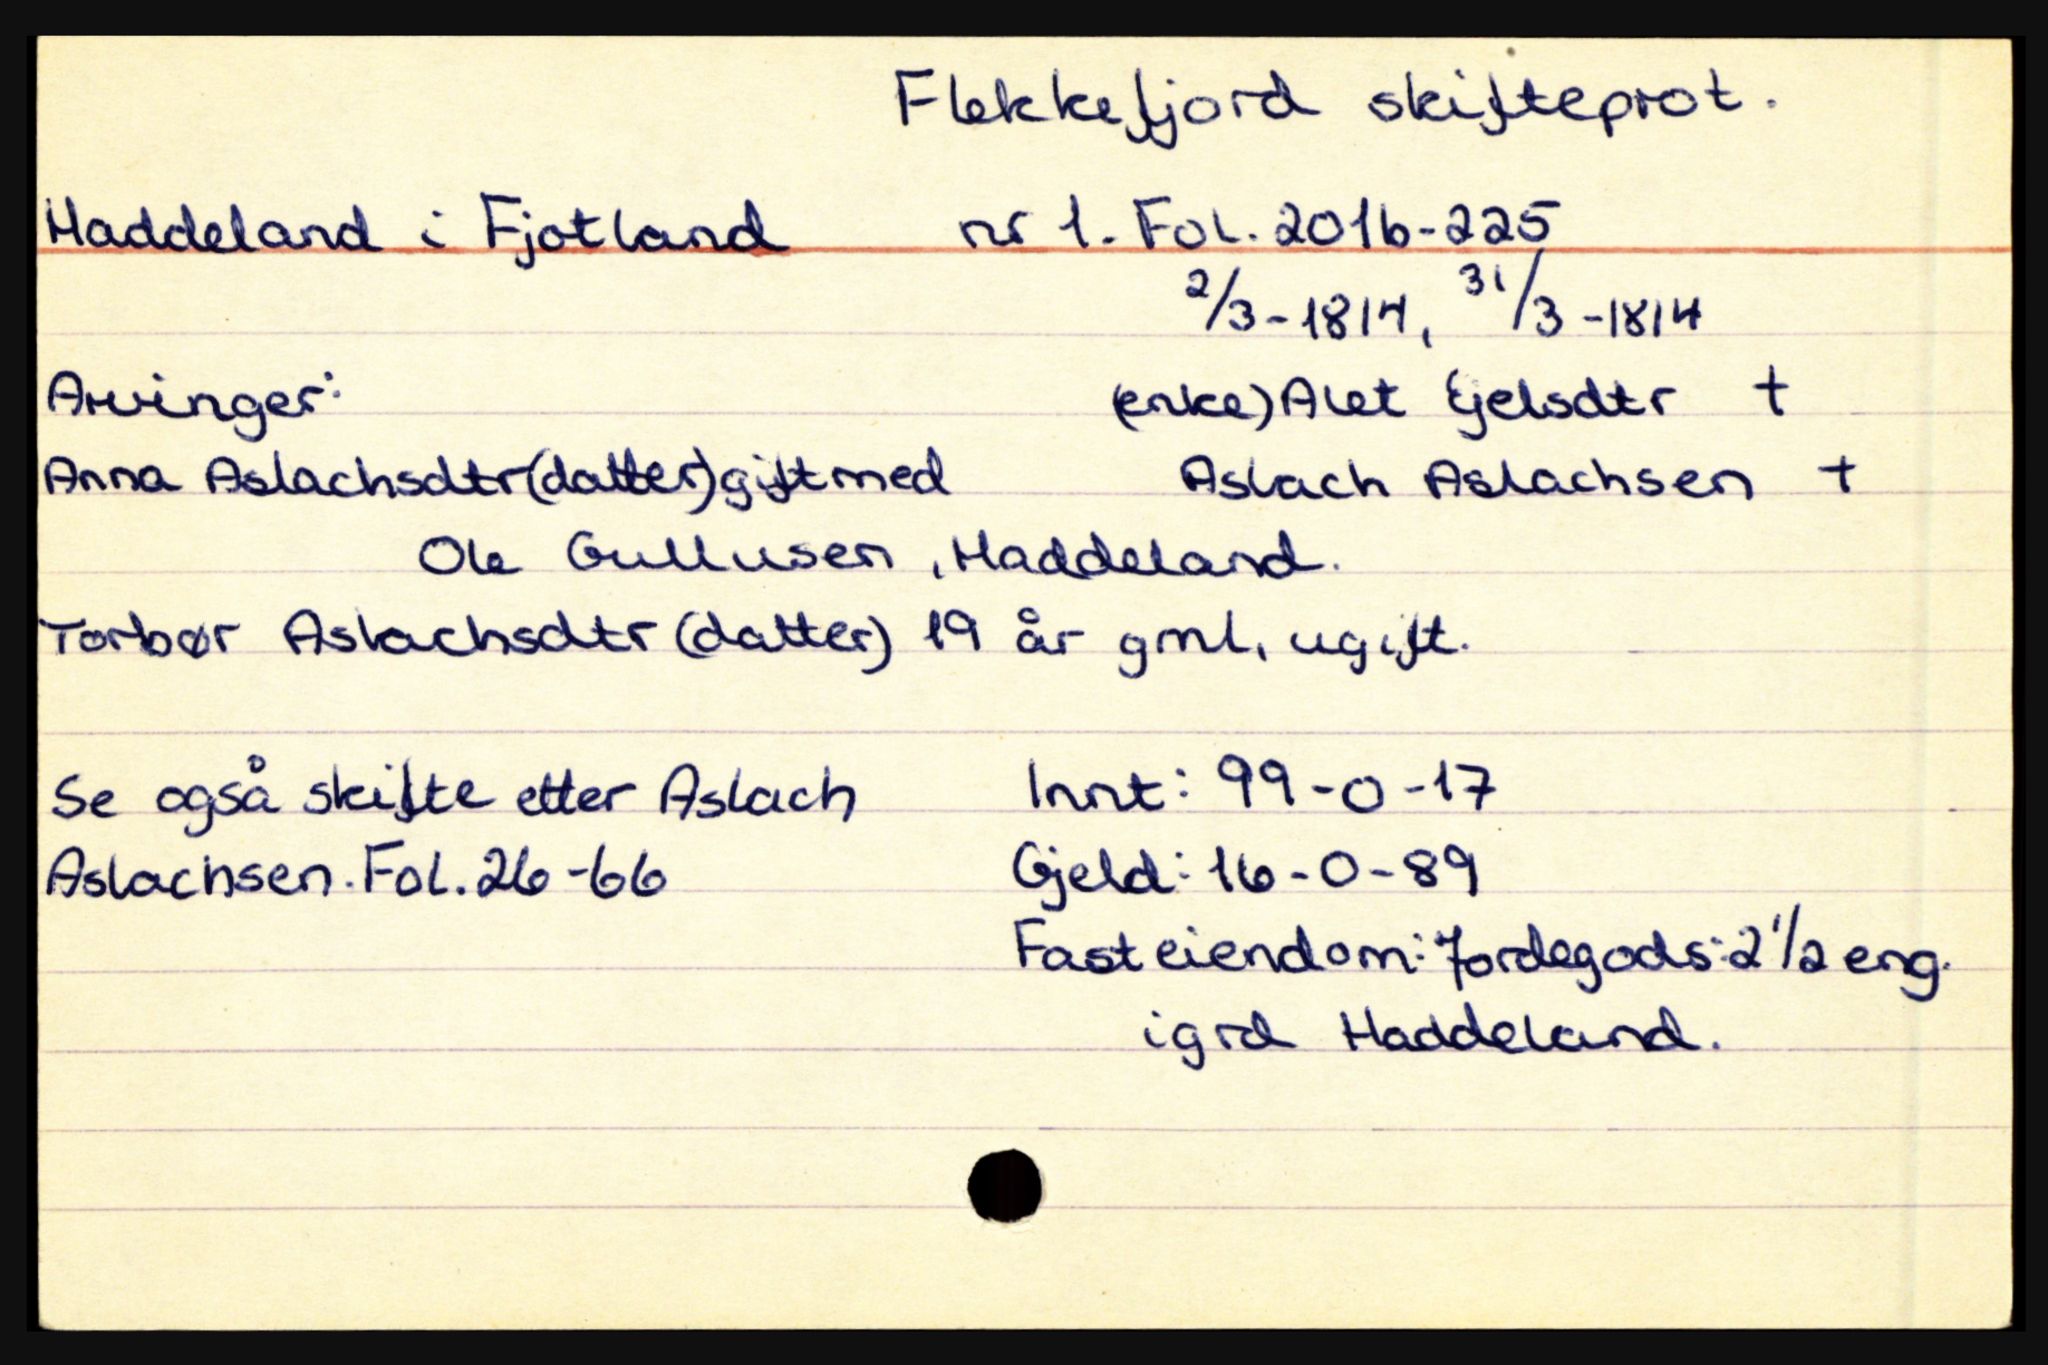 Flekkefjord skifteprot.
Haddeland i Fjotland nr 1. Fol. 201b-225
2/3-1814, 31/3-1814
Arvinger: (enke) Alet Ejelsdtr †
Anna Aslachsdtr (datter) gift med Aslach Aslachsen †
Ole Gullusen, Haddeland.
Torbør Aslachsdtr (datter) 19 år gml, ugift.
Se også skifte etter Aslach Innt: 99-0-17
Aslachsen. Fol. 26-66 Gjeld: 16-0-89
Fast eiendom: Jordegods: 2 1/2 eng.
i grd Haddeland.